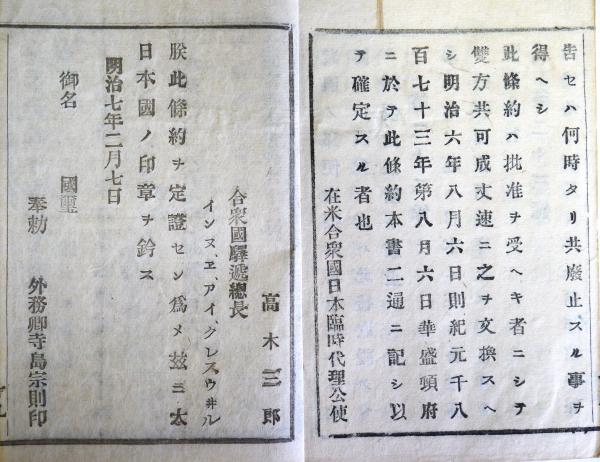 告セハ何時タリ共廢止スル事ヲ
得ヘシ
此條約ハ批准ヲ受ヘキ者ニシテ
雙方共可成丈速ニ之ヲ交換スヘ
シ明治六年八月六日則紀元千八
百七十三年第八月六日華盛頓府
ニ於テ此條約本書二通ニ記シ以
テ確定スル者也
在米合衆國日本臨時代理公使
高木三郎
合衆國驛遞總長
インヌ、ヱ、アイ、クレスウヰル
朕此條約ヲ定證セン爲メ茲ニ大
日本國ノ印章ヲ鈐ス
明治七年二月七日
御名 國璽
奉勅 外務卿寺島宗則印